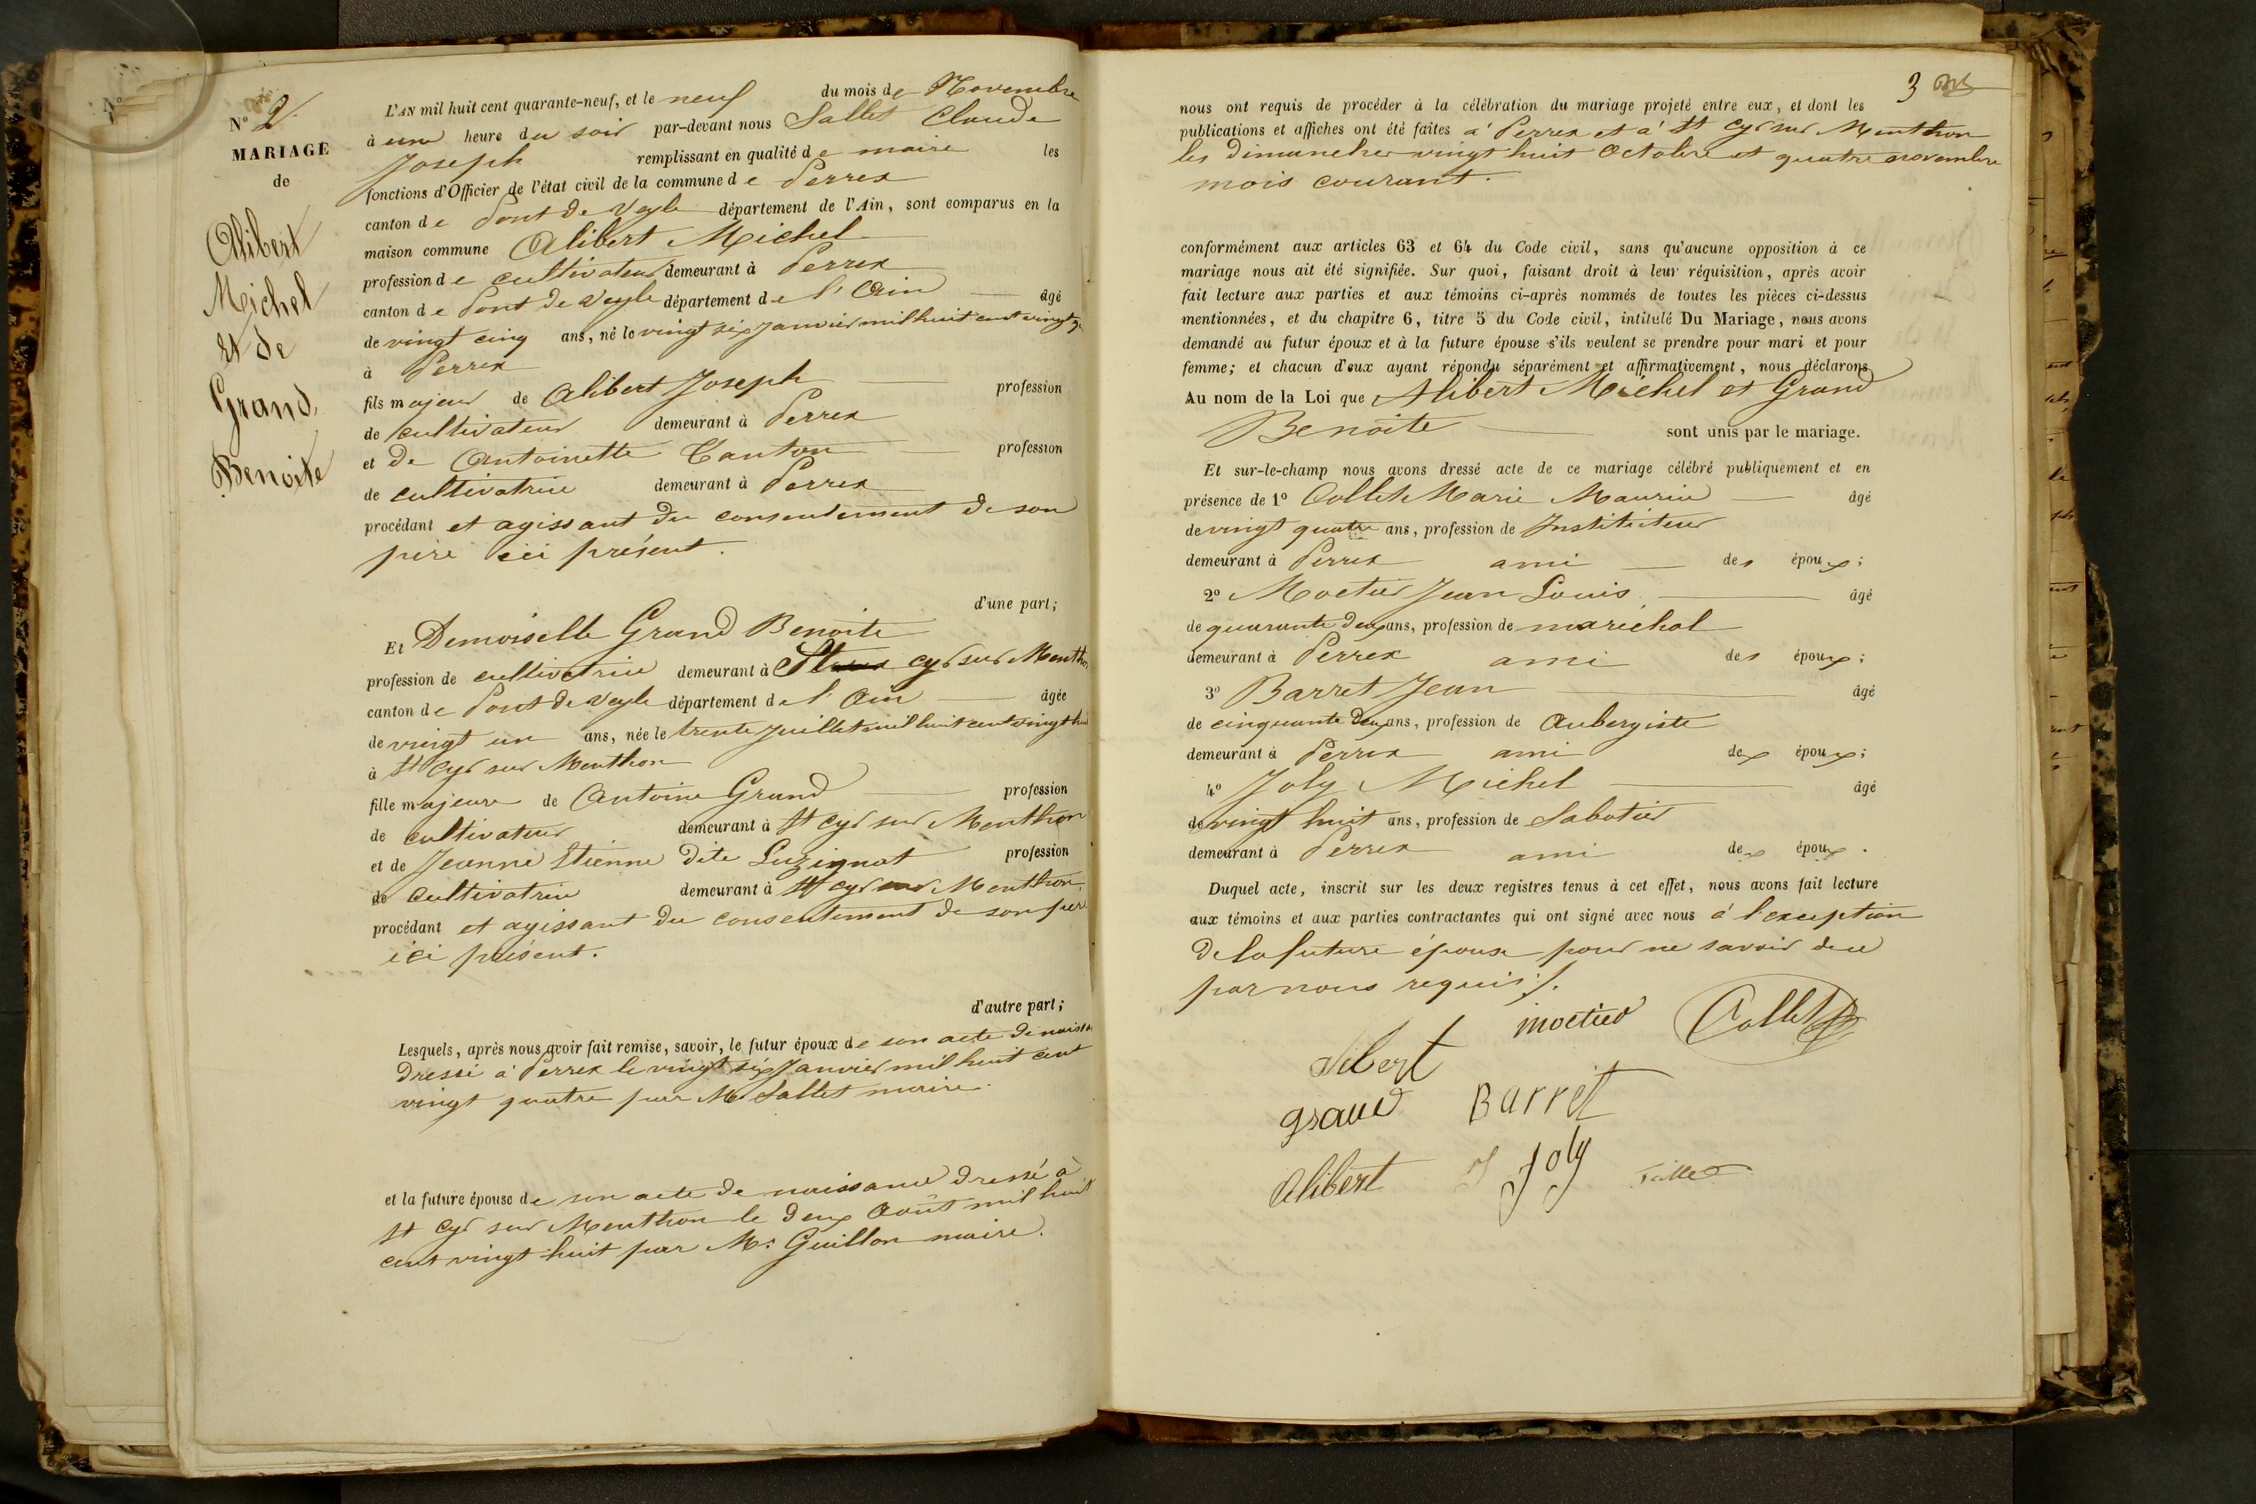 N°
N° 2
MARIAGE
de
Alibert
Michel
Et de
Grand
Benoite
L'AN mil huit cent quarante-neuf, et le neuf du mois de Novembre
à une heure du soir par-devant nous Sallet Claude
Joseph remplissant en qualité de maire les
fonctions d'Officier de l'état civil de la commune de Perrex
canton de Pont de Veyle département de l'Ain, sont comparus en la
maison commune Alibert Michel
profession de cultivateur demeurant à Perrex
canton de Pont de Veyle département de l'Ain âgé
de vingt cinq ans, né le vingt six janvier mil huit cent vingt
à Perrex
fils majeur de Alibert Joseph profession
de cultivateur demeurant à Perrex
et de Antoinette Canton profession
de cultivatrice demeurant à Perrex
procédant et agissant du consentement de son
père ici présent.
d'une part;
Et Demoiselle Grand Benoite
profession de cultivatrice demeurant à St cyr sur Menthon
canton de Pont de Veyle département de l'Ain âgée
de vingt un ans, née le trente juillet mil huit cent vingt huit
à St Cyr sur Menthon
fille majeure de Antoine Grand profession
de cultivateur demeurant à St cyr sur Menthon
et de Jeanne Etienne dite Luzignat profession
de cultivatrice demeurant à St cyr sur Menthon
procédant et agissant du consentement de son père
ici présent.
d'autre part;
Lesquels, après nous avoir fait remise, savoir, le futur époux de son acte de naissa
dressé à Perrex le vingt six Janvier mil huit cent
vingt quatre par Mr Sallet maire.
et la future épouse de son acte de naissance dressé à
St Cyr sur Menthon le deux Août mil huit
cent vingt huit par Mr Guillon maire.
3
nous ont requis de procéder à la célébration du mariage projeté entre eux, et dont les
publications et affiches ont été faites à Perrex et à St Cyr sur Menthon
les dimanches vingt huit Octobre et quatre novembre
mois courant.
conformément aux articles 63 et 64 du Code civil, sans qu'aucune opposition à ce
mariage nous ait été signifiée. Sur quoi, faisant droit à leur réquisition, après avoir
fait lecture aux parties et aux témoins ci-après nommés de toutes les pièces ci-dessus
mentionnées, et du chapitre 6, titre 5 du Code civil, intitulé Du Mariage, nous avons
demandé au futur époux et à la future épouse s'ils veulent se prendre pour mari et pour
femme; et chacun d'eux ayant répondu séparément et affirmativement, nous déclarons
Au nom de la Loi que Alibert Michel et Grand
Benoite sont unis par le mariage.
Et sur-le-champ nous avons dressé acte de ce mariage célébré publiquement et en
présence de 1° Collet Marie Maurice âgé
de vingt quatre ans, profession de Instituteur
demeurant à Perrex ami des époux;
2° Moctier Jean Louis âgé
de quarante deux ans, profession de maréchal
demeurant à Perrex ami des époux;
3° Barret Jean âgé
de cinquante deux ans, profession de Aubergiste
demeurant à Perrex ami des époux;
4° Joly Michel âgé
de vingt huit ans, profession de Sabotier
demeurant à Perrex ami des époux.
Duquel acte, inscrit sur les deux registres tenus à cet effet, nous avons fait lecture
aux témoins et aux parties contractantes qui ont signé avec nous à l'exception
de la future épouse pour ne savoir de ce
par nous requis ./.
moctier Collet
Alibert
grand Barret
Alibert J Joly